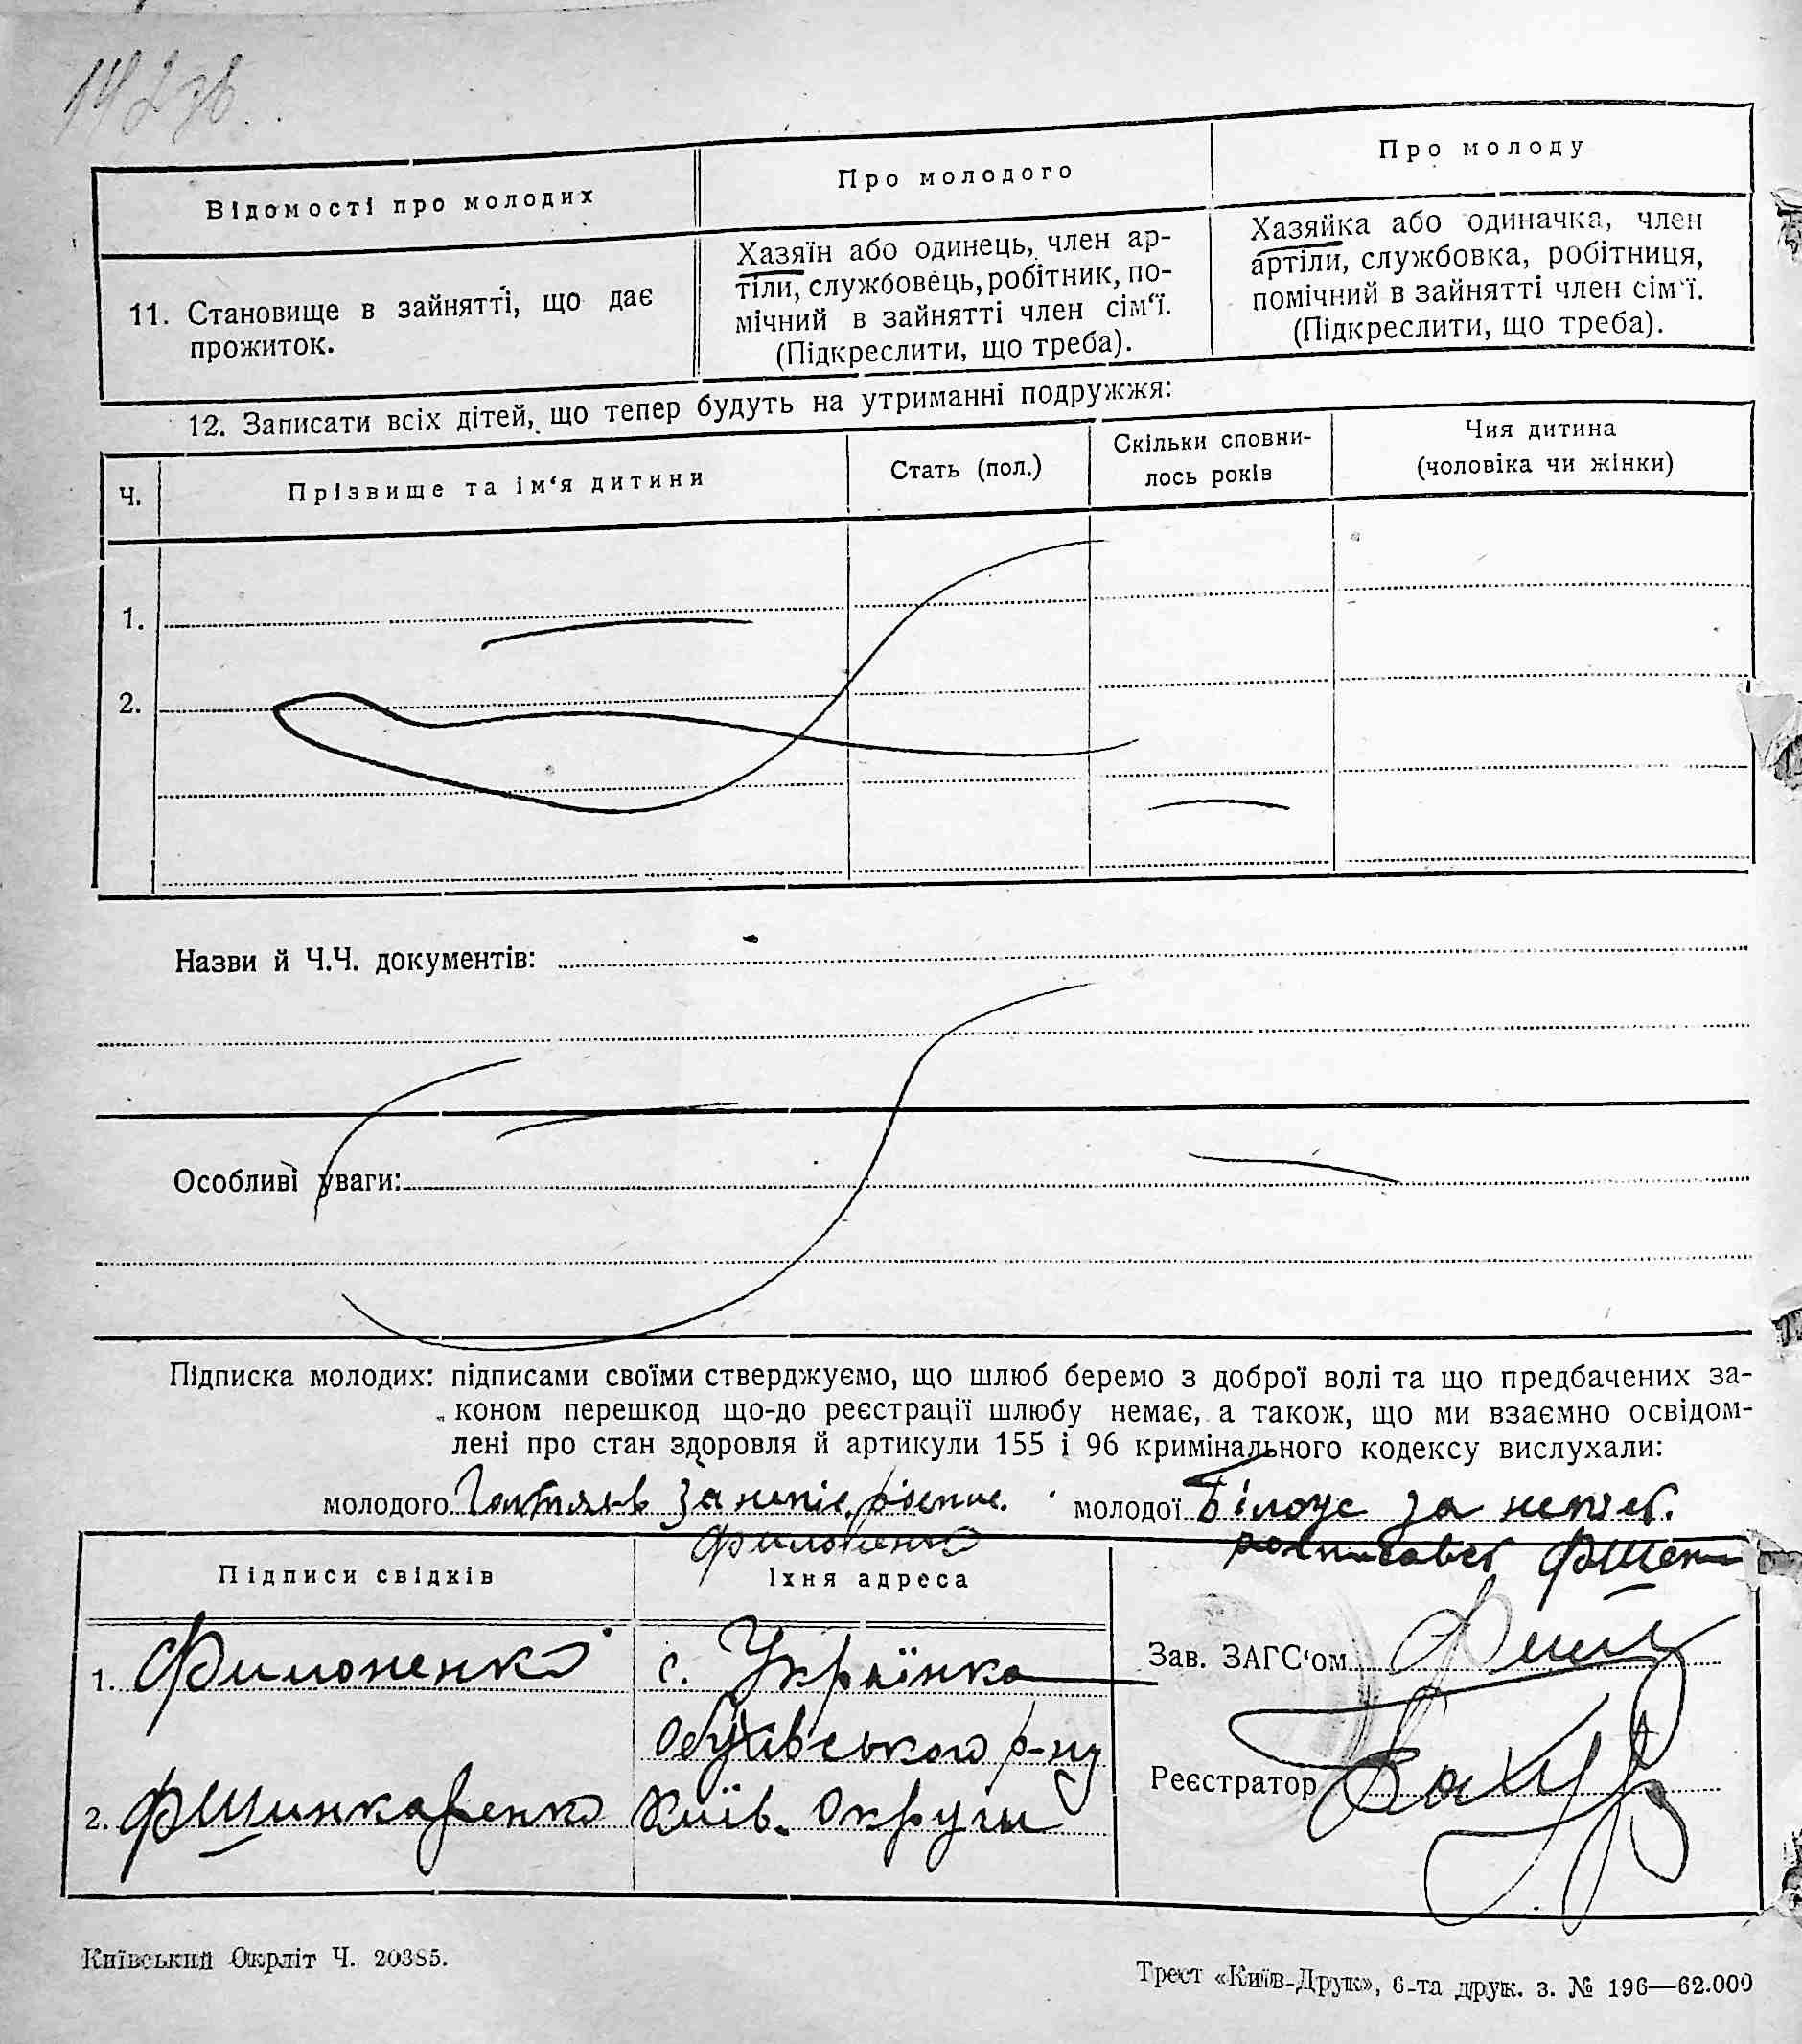 142 зв.
Відомості про молодих
Про молодого
Про молоду
11. Становище в зайнятті, що дає
прожиток.
Хазяїн або одинець, член ар-
тіли, службовець, робітник, по-
мічний в зайнятті член сім‘ї.
(Підкреслити, що треба).
Хазяйка або одиначка, член
артіли, службовка, робітниця,
помічний в зайнятті член сім‘ї.
(Підкреслити, що треба).
12. Записати всіх дітей, що тепер будуть на утриманні подружжя:
Ч.
Прізвище та ім‘я дитини
Стать (пол.)
Скільки сповни-
лось років
Чия дитина
(чоловіка чи жінки)
1.
2.
Назви й Ч.Ч. документів:
Особливі уваги:
Підписка молодих: підписами своїми стверджуємо, що шлюб беремо з доброї волі та що предбачених за-
коном перешкод що-до реєстрації шлюбу немає, а також, що ми взаємно освідом-
лені про стан здоровля й артикули 155 і 96 кримінального кодексу вислухали:
молодого за молодої Білоус за непис.
Филоненко росписавсь
Підписи свідків
Їхня адреса
1. Филоненко
с. Українка
Обухівського р-ну
2. ФШинкаренко
Київ. Округи
Зав. ЗАГС‘ом
Реєстратор
Київський Окрліт Ч. 20385.
Трест «Київ-Друк», 6-та друк. з. № 196—62.000